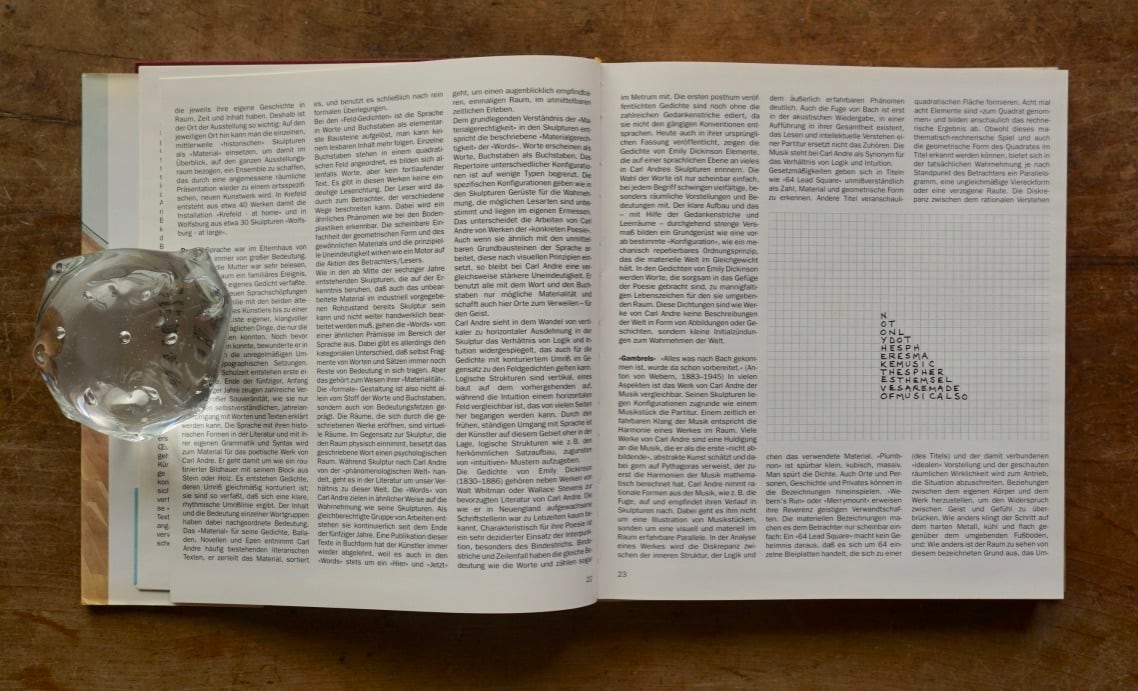 die jeweils ihre eigene Geschichte in
Raum, Zeit und Inhalt haben. Deshalb ist
der Ort der Ausstellung so wichtig: Auf den
jeweiligen Ort hin kann man die einzelnen,
mittlerweile »historischen« Skulpturen
als »Material« einsetzen, um damit im
Überblick, auf den ganzen Ausstellungs-
raum bezogen, ein Ensemble zu schaffen,
das durch eine angemessene räumliche
Präsentation wieder zu einem ortsspezifi-
schen, neuen Kunstwerk wird. In Krefeld
entsteht aus etwa 40 Werken damit die
Installation »Krefeld - at home« und in
Wolfsburg aus etwa 30 Skulpturen »Wolfs-
burg - at large«.
Sprache war im Elternhaus von
immer von großer Bedeutung.
Mutter war sehr belesen,
ein familiäres Ereignis,
eigenes Gedicht verfaßte.
neuen Sprachschöpfungen
mit den beiden älte-
Künstlers bis zu einer
eigener, klangvoller
täglichen Dinge, die nur die
konnte, bewunderte er in
die unregelmäßigen Um-
typographischen Setzungen.
Schulzeit entstehen erste
Ende der fünfziger, Anfang
Jahre zeugen zahlreiche Ver-
großer Souveränität, wie sie nur
selbstverständlichen, jahrelan-
Umgang mit Worten und Texten erklärt
werden kann. Die Sprache mit ihren histo-
rischen Formen in der Literatur und mit ih-
rer eigenen Grammatik und Syntax wird
zum Material für das poetische Werk von
Carl Andre. Er geht damit um wie ein rou-
tinierter Bildhauer mit seinem Block aus
Stein oder Holz. Es entstehen Gedichte,
deren Umriß gleichmäßig konturiert ist;
sie sind so verfaßt, daß sich eine klare,
rhythmische Umrißlinie ergibt. Der Inhalt
und die Bedeutung einzelner Wortgruppen
haben dabei nachgeordnete Bedeutung.
Das »Material« für seine Gedichte, Balla-
den, Novellen und Epen entnimmt Carl
Andre häufig bestehenden literarischen
Texten, er zerteilt das Material, sortiert
es, und benutzt es schließlich nach rein
formalen Überlegungen.
Bei den »Feld-Gedichten« ist die Sprache
in Worte und Buchstaben als elementar-
ste Bausteine aufgelöst, man kann kei-
nem lesbaren Inhalt mehr folgen. Einzelne
Buchstaben stehen in einem quadrati-
schen Feld angeordnet, es bilden sich al-
lenfalls Worte, aber kein fortlaufender
Text. Es gibt in diesen Werken keine ein-
deutige Leserichtung. Der Leser wird da-
durch zum Betrachter, der verschiedene
Wege beschreiten kann. Dabei wird ein
ähnliches Phänomen wie bei den Boden-
plastiken erkennbar. Die scheinbare Ein-
fachheit der geometrischen Form und des
gewöhnlichen Materials und die prinzipiel-
le Uneindeutigkeit wirken wie ein Motor auf
die Aktion des Betrachters/Lesers.
Wie in den ab Mitte der sechziger Jahre
entstehenden Skulpturen, die auf der Er-
kenntnis beruhen, daß auch das unbear-
beitete Material im industriell vorgegebe-
nen Rohzustand bereits Skulptur sein
kann und nicht weiter handwerklich bear-
beitet werden muß, gehen die »Words« von
einer ähnlichen Prämisse im Bereich der
Sprache aus. Dabei gibt es allerdings den
kategorialen Unterschied, daß selbst Frag-
mente von Worten und Sätzen immer noch
Reste von Bedeutung in sich tragen. Aber
das gehört zum Wesen ihrer »Materialität«.
Die »formale« Gestaltung ist also nicht al-
lein vom Stoff der Worte und Buchstaben,
sondern auch von Bedeutungsfetzen ge-
prägt. Die Räume, die sich durch die ge-
schriebenen Werke eröffnen, sind virtuel-
le Räume. Im Gegensatz zur Skulptur, die
den Raum physisch einnimmt, besetzt das
geschriebene Wort einen psychologischen
Raum. Während Skulptur nach Carl Andre
von der »phänomenologischen Welt« han-
delt, geht es in der Literatur um unser Ver-
hältnis zu dieser Welt. Die »Words« von
Carl Andre zielen in ähnlicher Weise auf die
Wahrnehmung wie seine Skulpturen. Als
gleichberechtigte Gruppe von Arbeiten ent-
stehen sie kontinuierlich seit dem Ende
der fünfziger Jahre. Eine Publikation dieser
Texte in Buchform hat der Künstler immer
wieder abgelehnt, weil es auch in den
»Words« stets um ein »Hier« und »Jetzt«
geht, um einen augenblicklich empfindba-
ren, einmaligen Raum, im unmittelbaren
zeitlichen Erleben.
Dem grundlegenden Verständnis der »Ma-
terialgerechtigkeit« in den Skulpturen ent-
spricht die beschriebene »Materialgerech-
tigkeit« der »Words«. Worte erscheinen als
Worte, Buchstaben als Buchstaben. Das
Repertoire unterschiedlicher Konfiguratio-
nen ist auf wenige Typen begrenzt. Die
spezifischen Konfigurationen geben wie in
den Skulpturen Gerüste für die Wahrneh-
mung, die möglichen Lesarten sind unbe-
stimmt und liegen im eigenen Ermessen.
Das unterscheidet die Arbeiten von Carl
Andre von Werken der »konkreten Poesie«.
Auch wenn sie ähnlich mit den unmittel-
baren Grundbausteinen der Sprache ar-
beitet, diese nach visuellen Prinzipien ein-
setzt, so bleibt bei Carl Andre eine ver-
gleichsweise stärkere Uneindeutigkeit. Er
benutzt alle mit dem Wort und den Buch-
staben nur mögliche Materialität und
schafft auch hier Orte zum Verweilen – für
den Geist.
Carl Andre sieht in dem Wandel von verti-
kaler zu horizontaler Ausdehnung in der
Skulptur das Verhältnis von Logik und In-
tuition widergespiegelt, das auch für die
Gedichte mit konturiertem Umriß im Ge-
gensatz zu den Feldgedichten gelten kann.
Logische Strukturen sind vertikal, eines
baut auf dem vorhergehenden auf,
während die Intuition einem horizontalen
Feld vergleichbar ist, das von vielen Seiten
her begangen werden kann. Durch den
frühen, ständigen Umgang mit Sprache ist
der Künstler auf diesem Gebiet eher in der
Lage, logische Strukturen wie z.B. den
herkömmlichen Satzaufbau, zugunsten
von »intuitiven« Mustern aufzugeben.
Die Gedichte von Emily Dickinson
(1830–1886) gehören neben Werken von
Walt Whitman oder Wallace Stevens zur
bevorzugten Literatur von Carl Andre. Die
wie er in Neuengland aufgewachsene
Schriftstellerin war zu Lebzeiten kaum be-
kannt. Charakteristisch für ihre Poesie ist
ein sehr dezidierter Einsatz der Interpunk-
tion, besonders des Bindestrichs. Binde-
striche und Zeilenfall haben die gleiche Be-
deutung wie die Worte und zählen sogar
22
im Metrum mit. Die ersten posthum veröf-
fentlichten Gedichte sind noch ohne die
zahlreichen Gedankenstriche ediert, da
sie nicht den gängigen Konventionen ent-
sprachen. Heute auch in ihrer ursprüngli-
chen Fassung veröffentlicht, zeigen die
Gedichte von Emily Dickinson Elemente,
die auf einer sprachlichen Ebene an vieles
in Carl Andres Skulpturen erinnern. Die
Wahl der Worte ist nur scheinbar einfach,
bei jedem Begriff schwingen vielfältige, be-
sonders räumliche Vorstellungen und Be-
deutungen mit. Der klare Aufbau und das
– mit Hilfe der Gedankenstriche und
Leerräume – durchgehend strenge Vers-
maß bilden ein Grundgerüst wie eine vor-
ab bestimmte »Konfiguration«, wie ein me-
chanisch repetierbares Ordnungsprinzip,
das die materielle Welt im Gleichgewicht
hält. In den Gedichten von Emily Dickinson
werden Worte, die sorgsam in das Gefüge
der Poesie gebracht sind, zu mannigfalti-
gen Lebenszeichen für den sie umgeben-
den Raum. Diese Dichtungen sind wie Wer-
ke von Carl Andre keine Beschreibungen
der Welt in Form von Abbildungen oder Ge-
schichten, sondern kleine Initialzündun-
gen zum Wahrnehmen der Welt.
»Gambrels« »Alles was nach Bach gekom-
men ist, wurde da schon vorbereitet.« (An-
ton von Webern, 1883–1945) In vielen
Aspekten ist das Werk von Carl Andre der
Musik vergleichbar. Seinen Skulpturen lie-
gen Konfigurationen zugrunde wie einem
Musikstück die Partitur. Einem zeitlich er-
fahrbaren Klang der Musik entspricht die
Harmonie eines Werkes im Raum. Viele
Werke von Carl Andre sind eine Huldigung
an die Musik, die er als die erste »nicht ab-
bildende«, abstrakte Kunst schätzt und da-
bei gern auf Pythagoras verweist, der zu-
erst die Harmonien der Musik mathema-
tisch berechnet hat. Carl Andre nimmt ra-
tionale Formen aus der Musik, wie z. B. die
Fuge, auf und empfindet ihren Verlauf in
Skulpturen nach. Dabei geht es ihm nicht
um eine Illustration von Musikstücken,
sondern um eine visuell und materiell im
Raum erfahrbare Parallele. In der Analyse
eines Werkes wird die Diskrepanz zwi-
schen der inneren Struktur, der Logik und
dem äußerlich erfahrbaren Phänomen
deutlich. Auch die Fuge von Bach ist erst
in der akustischen Wiedergabe, in einer
Aufführung in ihrer Gesamtheit existent,
das Lesen und intellektuelle Verstehen ei-
ner Partitur ersetzt nicht das Zuhören. Die
Musik steht bei Carl Andre als Synonym für
das Verhältnis von Logik und Intuition.
Gesetzmäßigkeiten geben sich in Titeln
wie »64 Lead Square« unmißverständlich
als Zahl, Material und geometrische Form
zu erkennen. Andere Titel veranschauli-
quadratischen Fläche formieren. Acht mal
acht Elemente sind »zum Quadrat genom-
men« und bilden anschaulich das rechne-
rische Ergebnis ab. Obwohl dieses ma-
thematisch-rechnerische Spiel und auch
die geometrische Form des Quadrates im
Titel erkannt werden können, bietet sich in
der tatsächlichen Wahrnehmung je nach
Standpunkt des Betrachters ein Parallelo-
gramm, eine unregelmäßige Viereckform
oder eine verzogene Raute. Die Diskre-
panz zwischen dem rationalen Verstehen
N
OT
ONL
YDOT
HESPH
ERESMA
KEMUSIC
THESPHER
ESTHEMSEL
VESAREMADE
OFMUSICALSO
chen das verwendete Material. »Plumb-
non« ist spürbar klein, kubisch, massiv.
Man spürt die Dichte. Auch Orte und Per-
sonen, Geschichte und Privates können in
die Bezeichnungen hineinspielen. »We-
bern's Run« oder »Merrymount« erweisen
ihre Reverenz geistigen Verwandtschaf-
ten. Die materiellen Bezeichnungen ma-
chen es dem Betrachter nur scheinbar ein-
fach: Ein »64 Lead Square« macht kein Ge-
heimnis daraus, daß es sich um 64 ein-
zelne Bleiplatten handelt, die sich zu einer
(des Titels) und der damit verbundenen
»idealen« Vorstellung und der geschauten
räumlichen Wirklichkeit wird zum Antrieb,
die Situation abzuschreiten, Beziehungen
zwischen dem eigenen Körper und dem
Werk herzustellen, um den Widerspruch
zwischen Geist und Gefühl zu über-
brücken. Wie anders klingt der Schritt auf
dem harten Metall, kühl und flach ge-
genüber dem umgebenden Fußboden,
und: Wie anders ist der Raum zu sehen von
diesem bezeichneten Grund aus, das Um-
23